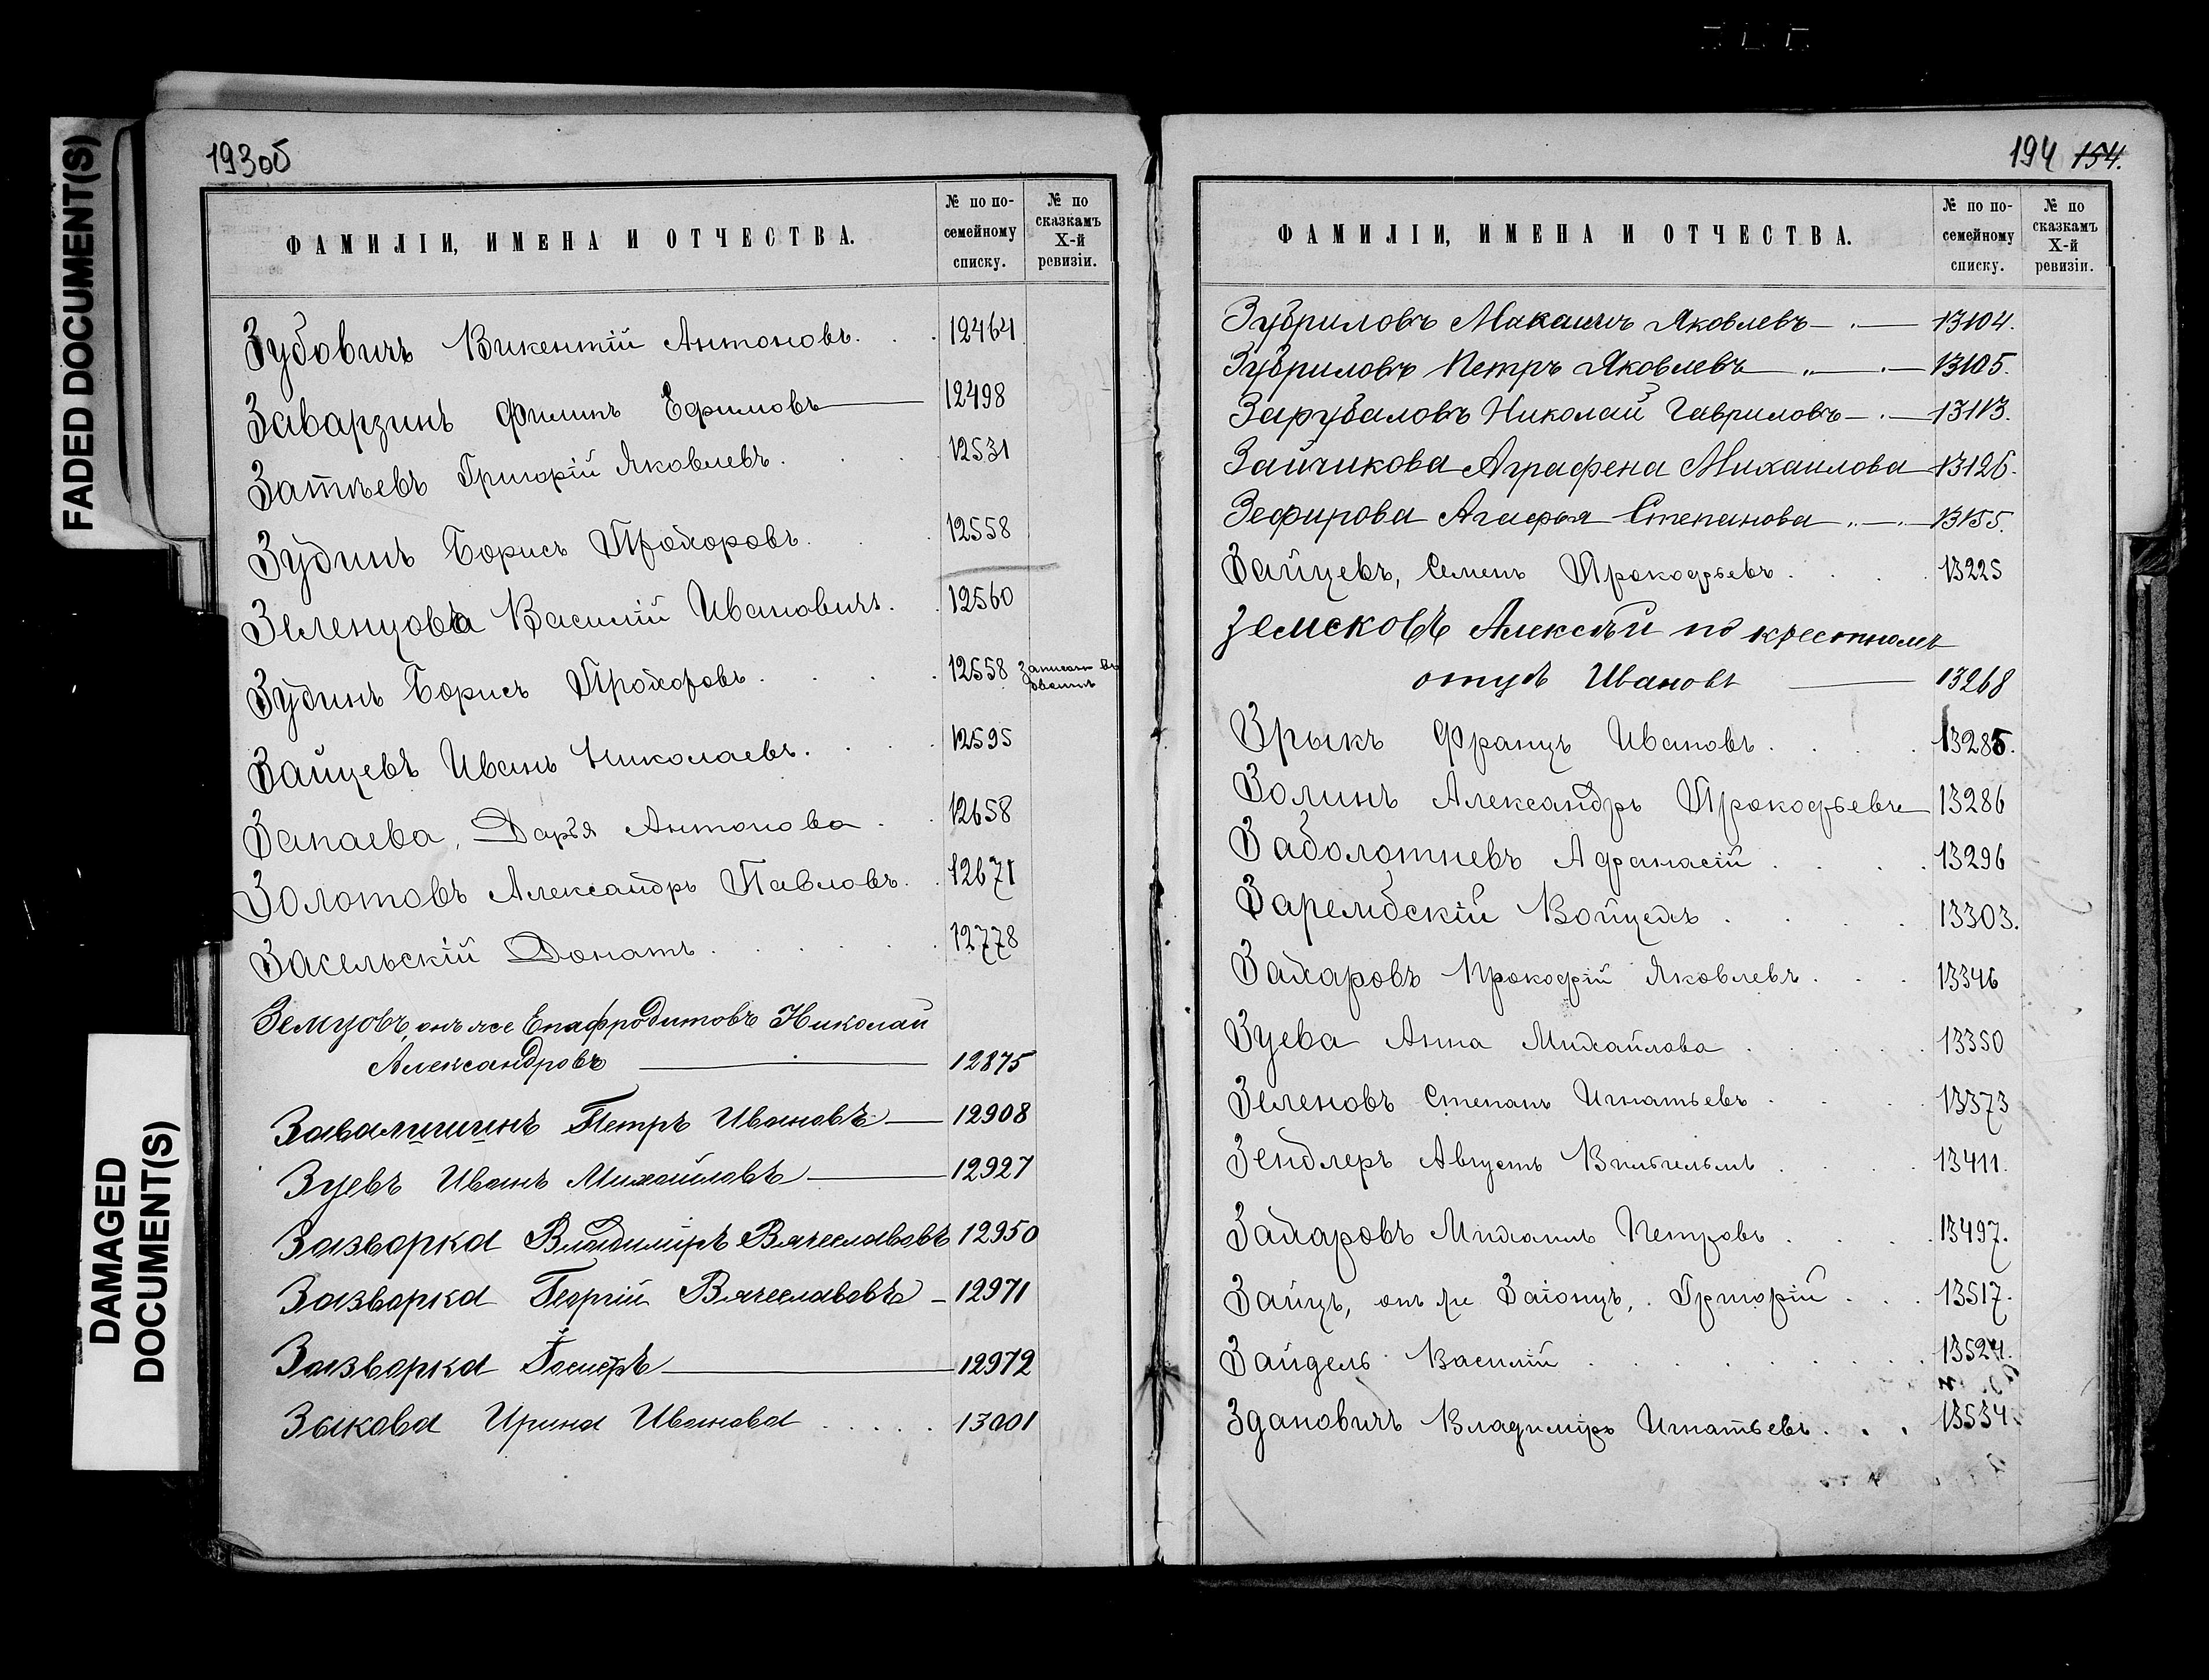 FADED DOCUMENT(S)
DAMAGED
DOCUMENT(S)
193об
ФАМИЛІИ, ИМЕНА И ОТЧЕСТВА.
№ по по-
семейному
списку.
№ по
сказкамъ
X-й
ревизіи.
Зубовичъ Викентій Антоновъ. . . 12464
Заварзинъ Филипъ Ефимовъ — 12498
Затѣевъ Григорій Яковлевъ. . . 12531
Зудинъ Борисъ Прохоровъ. . . 12558
Зеленцова Василій Ивановичъ. . 12560
Зудинъ Борисъ Прохоровъ. . . . 12558 Записанъ въ
Зайцевъ Иванъ Николаевъ. . . . 12595
Запаева, Дарья Антонова . . 12658
Золотовъ Александръ Павловъ. . 12671
Засельскій Донатъ. . . . . . 12778
Земцовъ, онъ же Епафродитовъ Николай
Александровъ — 12875
Завалишинъ Петръ Ивановъ — 12908
Зуевъ Иванъ Михайловъ — 12927
Зазворка Владиміръ Вячеславовъ 12950
Зазворка Георгій Вячеславовъ — 12971
Зазворка — 12972
Зыкова Ирина Иванова . . . . 13001
194 154.
ФАМИЛІИ, ИМЕНА И ОТЧЕСТВА.
№ по по-
семейному
списку.
№ по
сказкамъ
X-й
ревизіи.
Зубриловъ Максимъ Яковлевъ — . — 13104.
Зубриловъ Петръ Яковлевъ — „ — . — 13105.
Зарубаловъ Николай Гавриловъ — . — 13113.
Зайчикова Аграфена Михаилова — 13126.
Зефирова Агафья Степанова „ — „ 13155.
Зайцевъ, Семенъ Прокофьевъ . . . . 13225
Земсковъ Алексѣй по крестному
отцу Ивановъ — 13268
Зрыкъ Францъ Ивановъ . . . . 13285.
Золинъ Александръ Прокофьевъ 13286
Заболотневъ Афанасій . . . . 13296
Зарембскій Войцехъ . . . . 13303.
Захаровъ Прокофій Яковлевъ . . . 13346
Зуева Анна Михайлова . . . . 13350
Зеленовъ Степанъ Игнатьевъ . . . 13373
Зендлеръ Августъ Вильгельмъ . . . . 13411.
Захаровъ Михаилъ Петровъ . . . . 13497.
Зайцъ, онъ же Заіонцъ, Григорій . . . 13517.
Зайдель Василій . . . . . . . . 13524.
Здановичъ Владиміръ Игнатьевъ. . . 13534.